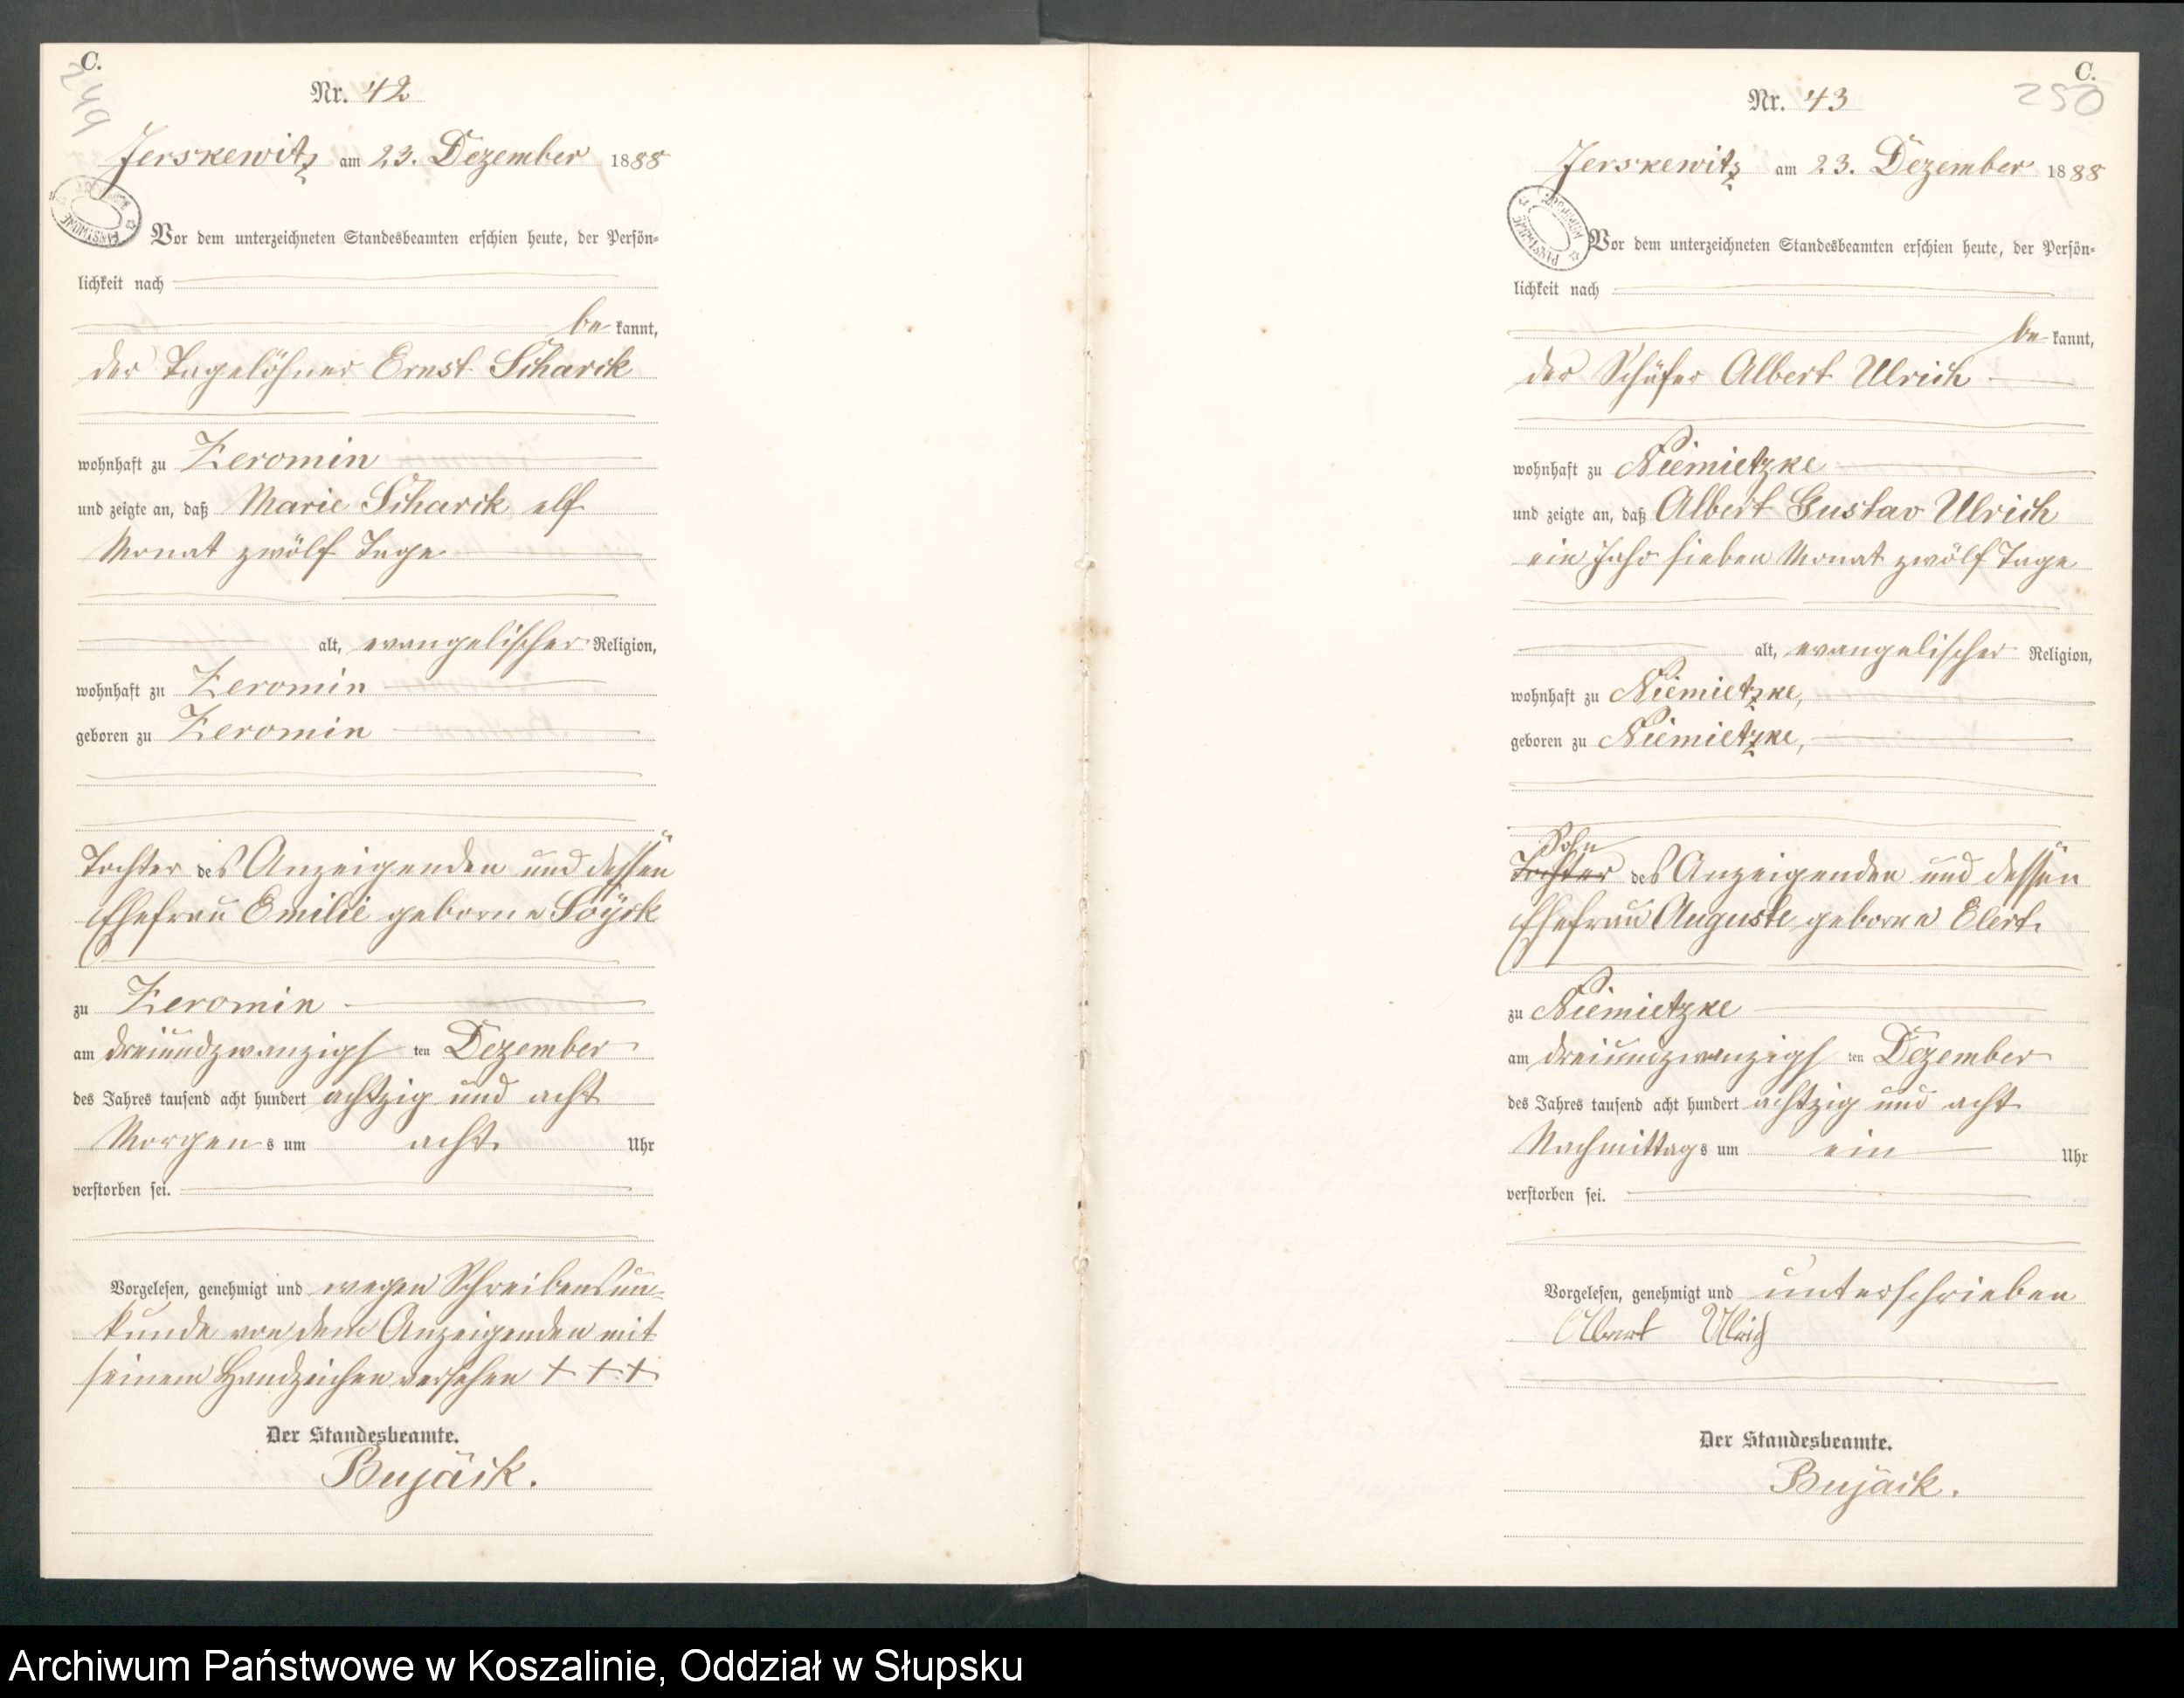 C.
249
Nr. 42
Jerskewitz am 23. Dezember 1888
Vor dem unterzeichneten Standesbeamten erschien heute, der Persön-
lichkeit nach
be kannt,
der Tagelöhner Ernst Scharck
wohnhaft zu Zeromin
und zeigte an, daß Marie Scharck elf
Monat zwölf Tage
alt, evangelischer Religion,
wohnhaft zu Zeromin
geboren zu Zeromin
Tochter des Anzeigenden und dessen
Ehefrau Emilie geborne Soyck
zu Zeromin
am dreiundzwanzigsten Dezember
des Jahres tausend acht hundert achtzig und acht
Morgens um acht Uhr
verstorben sei.
Vorgelesen, genehmigt und wegen Schreibensun-
kunde von dem Anzeigenden mit
seinem Handzeichen versehen + + +
Der Standesbeamte.
Bujack.
C.
250
Nr. 43
Jerskewitz am 23. Dezember 1888
Vor dem unterzeichneten Standesbeamten erschien heute, der Persön-
lichkeit nach
be kannt,
der Schäfer Albert Ulrich
wohnhaft zu Niemietzke
und zeigte an, daß Albert Gustav Ulrich
ein Jahr sieben Monat zwölf Tage
alt, evangelischer Religion,
wohnhaft zu Niemietzke,
geboren zu Niemietzke,
Sohn
Tochter des Anzeigenden und dessen
Ehefrau Auguste geborne Elert.
zu Niemietzke
am dreiundzwanzigsten Dezember
des Jahres tausend acht hundert achtzig und acht
Nachmittags um ein Uhr
verstorben sei.
Vorgelesen, genehmigt und unterschrieben
Albert Ulrich
Der Standesbeamte.
Bujack.
Archiwum Państwowe w Koszalinie, Oddział w Słupsku